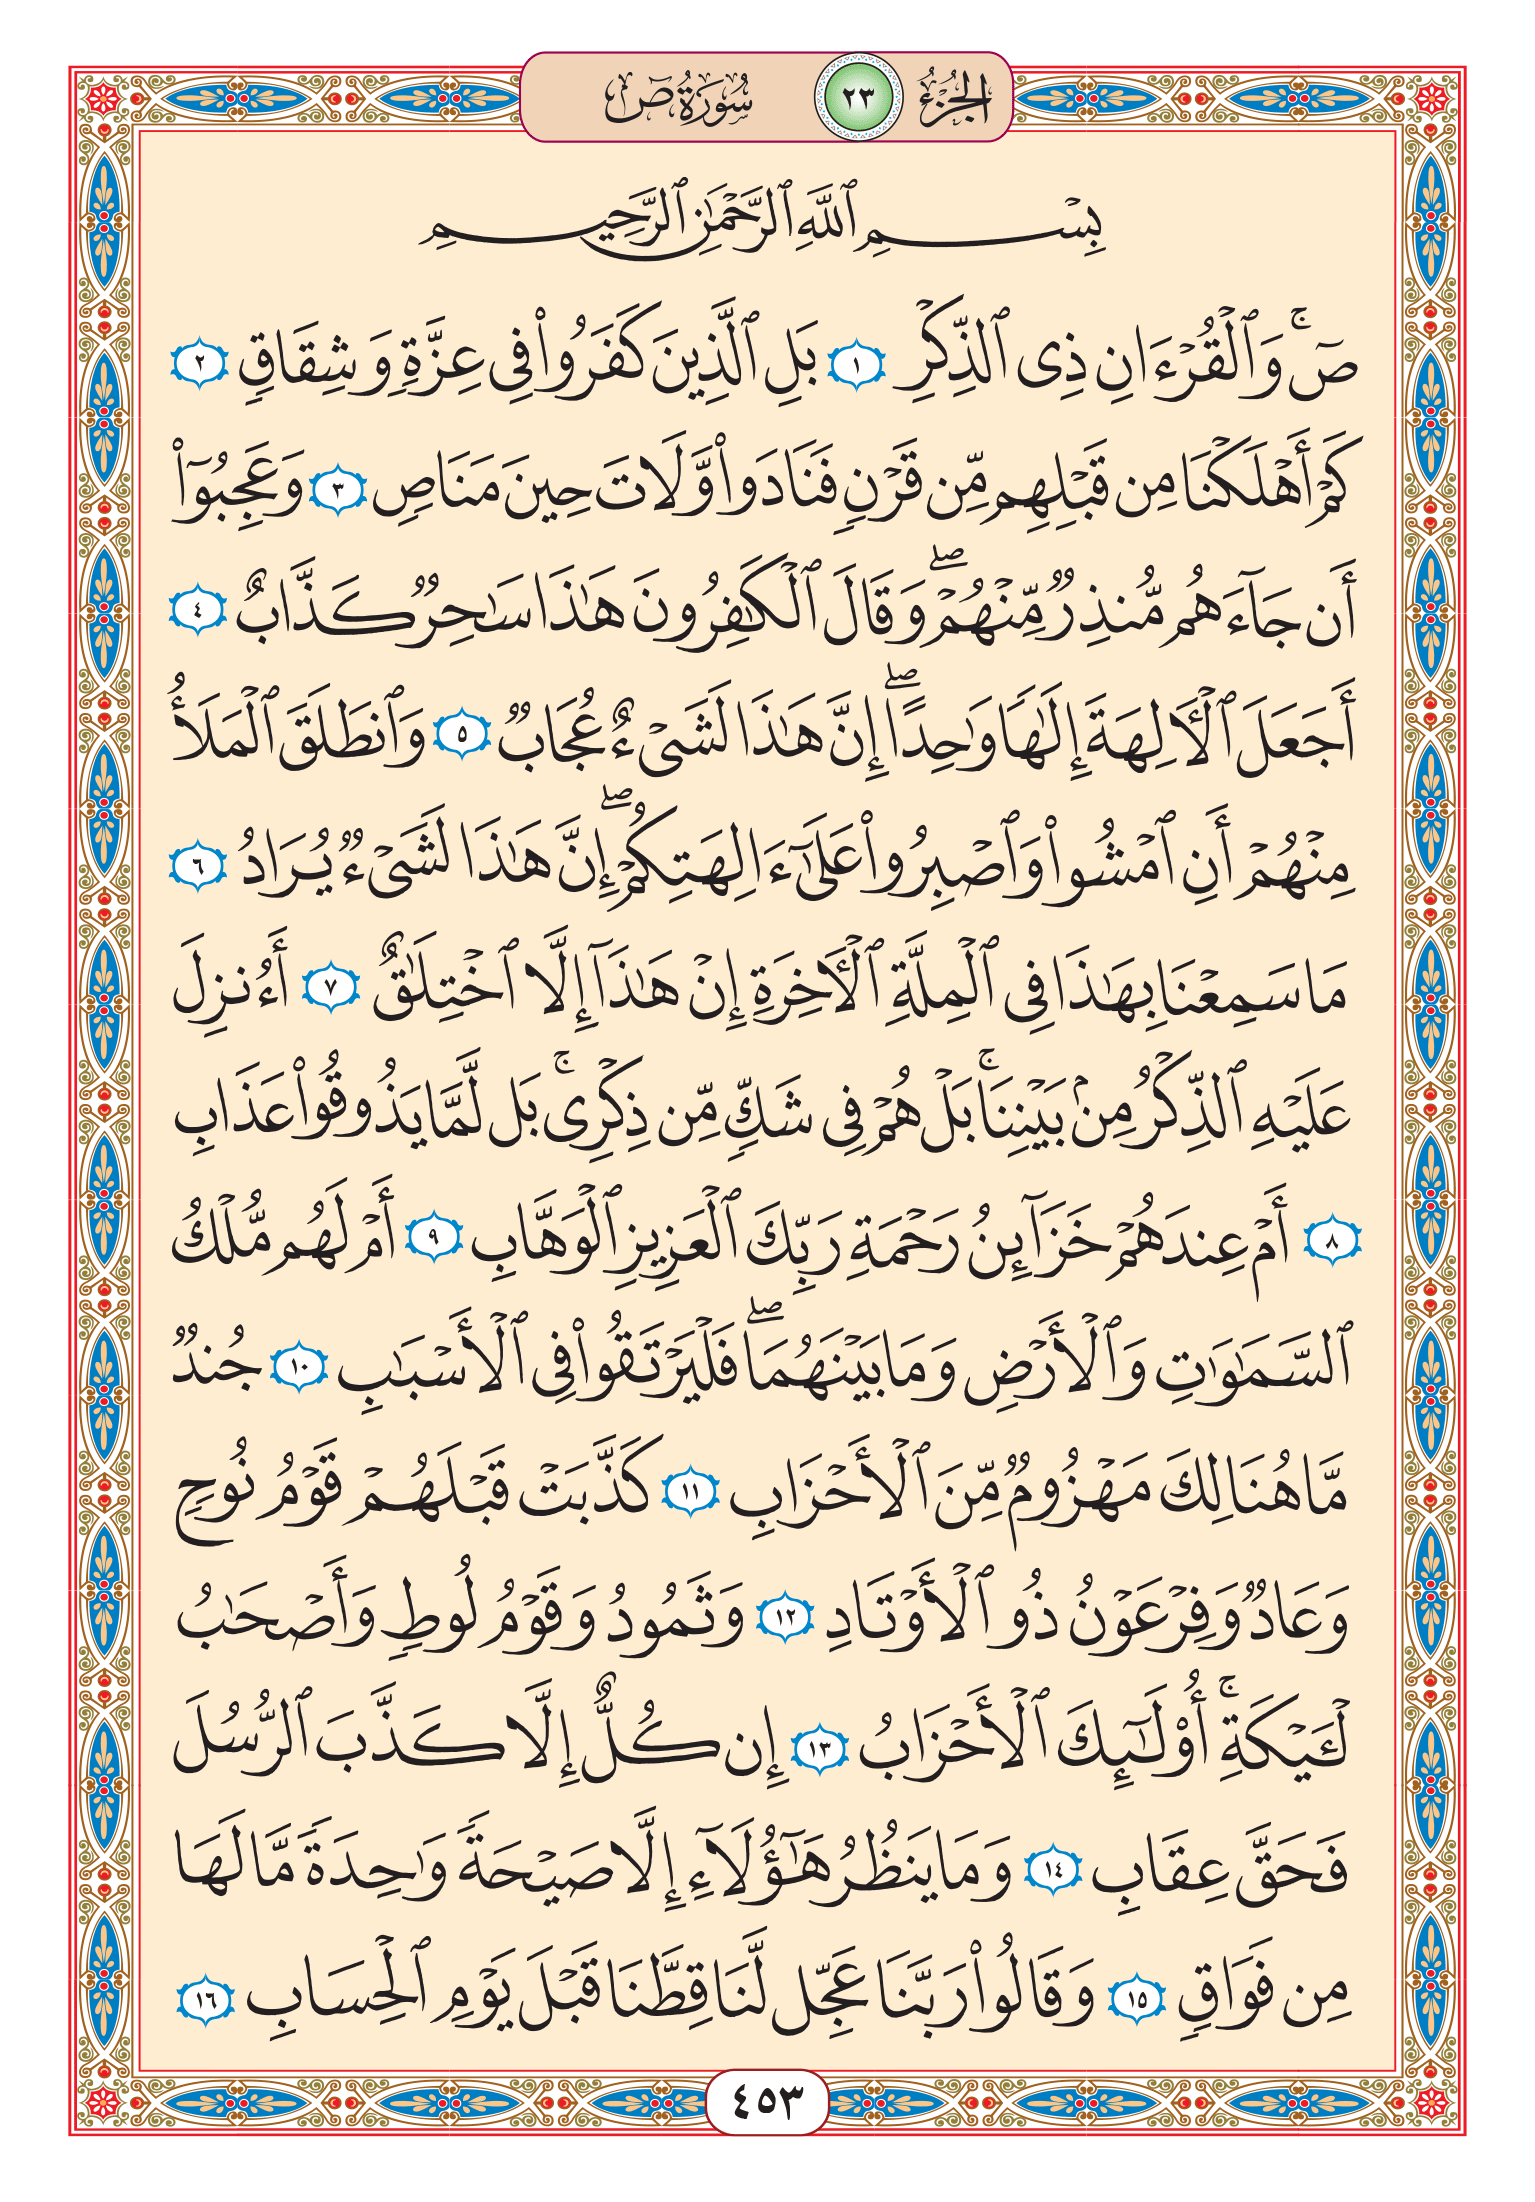 الجزء ٢٣ سورة ص
بِسْمِ ٱللَّهِ ٱلرَّحْمَٰنِ ٱلرَّحِيمِ
صٓ ۚ وَٱلْقُرْءَانِ ذِى ٱلذِّكْرِ ١ بَلِ ٱلَّذِينَ كَفَرُوا۟ فِى عِزَّةٍ وَشِقَاقٍ ٢
كَمْ أَهْلَكْنَا مِن قَبْلِهِم مِّن قَرْنٍ فَنَادَوا۟ وَّلَاتَ حِينَ مَنَاصٍ ٣ وَعَجِبُوٓا۟
أَن جَآءَهُم مُّنذِرٌ مِّنْهُمْ ۖ وَقَالَ ٱلْكَٰفِرُونَ هَٰذَا سَٰحِرٌ كَذَّابٌ ٤
أَجَعَلَ ٱلْءَالِهَةَ إِلَٰهًا وَٰحِدًا ۖ إِنَّ هَٰذَا لَشَىْءٌ عُجَابٌ ٥ وَٱنطَلَقَ ٱلْمَلَأُ
مِنْهُمْ أَنِ ٱمْشُوا۟ وَٱصْبِرُوا۟ عَلَىٰٓ ءَالِهَتِكُمْ ۖ إِنَّ هَٰذَا لَشَىْءٌ يُرَادُ ٦
مَا سَمِعْنَا بِهَٰذَا فِى ٱلْمِلَّةِ ٱلْءَاخِرَةِ إِنْ هَٰذَآ إِلَّا ٱخْتِلَٰقٌ ٧ أَءُنزِلَ
عَلَيْهِ ٱلذِّكْرُ مِنۢ بَيْنِنَا ۚ بَلْ هُمْ فِى شَكٍّ مِّن ذِكْرِى ۚ بَل لَّمَّا يَذُوقُوا۟ عَذَابِ
٨ أَمْ عِندَهُمْ خَزَآئِنُ رَحْمَةِ رَبِّكَ ٱلْعَزِيزِ ٱلْوَهَّابِ ٩ أَمْ لَهُم مُّلْكُ
ٱلسَّمَٰوَٰتِ وَٱلْأَرْضِ وَمَا بَيْنَهُمَا ۖ فَلْيَرْتَقُوا۟ فِى ٱلْأَسْبَٰبِ ١٠ جُندٌ
مَّا هُنَالِكَ مَهْزُومٌ مِّنَ ٱلْأَحْزَابِ ١١ كَذَّبَتْ قَبْلَهُمْ قَوْمُ نُوحٍ
وَعَادٌ وَفِرْعَوْنُ ذُو ٱلْأَوْتَادِ ١٢ وَثَمُودُ وَقَوْمُ لُوطٍ وَأَصْحَٰبُ
لْـَٔيْكَةِ ۚ أُو۟لَٰٓئِكَ ٱلْأَحْزَابُ ١٣ إِن كُلٌّ إِلَّا كَذَّبَ ٱلرُّسُلَ
فَحَقَّ عِقَابِ ١٤ وَمَا يَنظُرُ هَٰٓؤُلَآءِ إِلَّا صَيْحَةً وَٰحِدَةً مَّا لَهَا
مِن فَوَاقٍ ١٥ وَقَالُوا۟ رَبَّنَا عَجِّل لَّنَا قِطَّنَا قَبْلَ يَوْمِ ٱلْحِسَابِ ١٦
٤٥٣